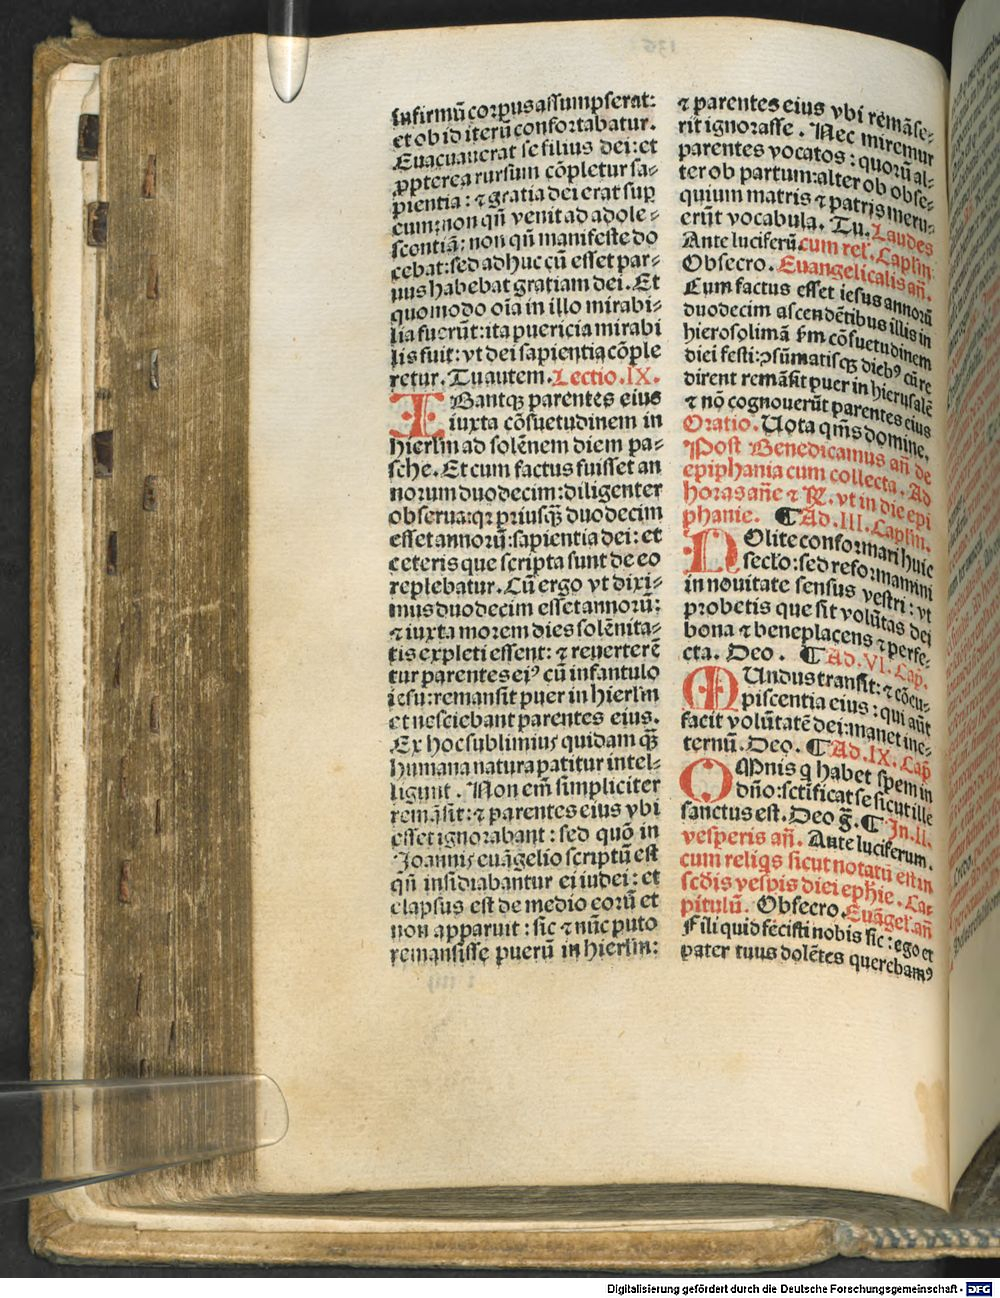 infirmũ corpus assumpserat:
et ob id iterũ confortabatur.
Euacuauerat se filius dei: et
ꝓpterea rursum cõpletur sa⸗
pientia: ⁊ gratia dei erat suꝑ
eum: non qñ venit ad adole⸗
scentiã: non qñ manifeste do
cebat: sed adhuc cũ esset par⸗
uus habebat gratiam dei. Et
quomodo oĩa in illo mirabi⸗
lia fuerũt: ita puericia mirabi
lis fuit: vt dei sapientia cõple
retur. Tu autem. Lectio. IX.
IBantqꝫ parentes eius
iuxta cõsuetudinem in
hierlm̃ ad solẽnem diem pa⸗
sche. Et cum factus fuisset an
norum duodecim: diligenter
obserua: qꝛ priusqꝫ̃ duodecim
esset annorũ: sapientia dei: et
ceteris que scripta sunt de eo
replebatur. Cũ ergo vt dixi⸗
mus duodecim esset annorũ:
⁊ iuxta morem dies solẽnita⸗
tis expleti essent: ⁊ reuerterẽ
tur parentes eiꝰ cũ infantulo
iesu: remansit puer in hierlm̃
et nesciebant parentes eius.
Ex hoc sublimius quidam qꝫ̃
humana natura patitur intel⸗
ligunt. Non em̃ simpliciter
remãsit: ⁊ parentes eius vbi
esset ignorabant: sed quõ in
Joannis euãgelio scriptũ est
qñ insidiabantur ei iudei: et
elapsus est de medio eorũ et
non apparuit: sic ⁊ nũc puto
remansisse puerũ in hierlm̃:
⁊ parentes eius vbi remãse⸗
rit ignorasse. Nec miremur
parentes vocatos: quorũ al⸗
ter ob partum: alter ob obse⸗
quium matris ⁊ patris meru⸗
erũt vocabula. Tu. Laudes
Ante luciferũ. cum rel̃. Caplm̃.
Obsecro. Euangelicalis añ.
Cum factus esset iesus annorũ
duodecim ascendẽtibus illis in
hierosolimã ẜm cõsuetudinem
diei festi: ꝯsũmatisqꝫ diebꝰ cũ re
dirent remãsit puer in hierusalẽ
⁊ nõ cognouerũt parentes eius
Oratio. Uota qm̃s domine.
Post Benedicamus añ de
epiphania cum collecta. Ad
horas añe ⁊ ℞. vt in die epi
phanie. ¶ Ad. III. Caplm̃.
NOlite conformari huic
seclo: sed reformamini
in nouitate sensus vestri: vt
probetis que sit volũtas dei
bona ⁊ beneplacens ⁊ perfe⸗
cta. Deo. ¶ Ad. VI. Cap.
MUndus transit: ⁊ cõcu⸗
piscentia eius: qui aũt
facit volũtatẽ dei: manet ine⸗
ternũ. Deo. ¶ Ad. IX. Cap̃
OMnis q habet spem in
dño: sctificat se sicut ille
sanctus est. Deo g̃. ¶ In. II.
vesperis añ. Ante luciferum.
cum reliqs sicut notatũ est in
scd̃is vesp̃is diei ep̃hie. Ca⸗
pitulũ. Obsecro. Euãgel̃. añ
Fili quid fecisti nobis sic: ego et
pater tuus dolẽtes querebamꝰ
Digitalisierung gefördert durch die Deutsche Forschungsgemeinschaft - DFG